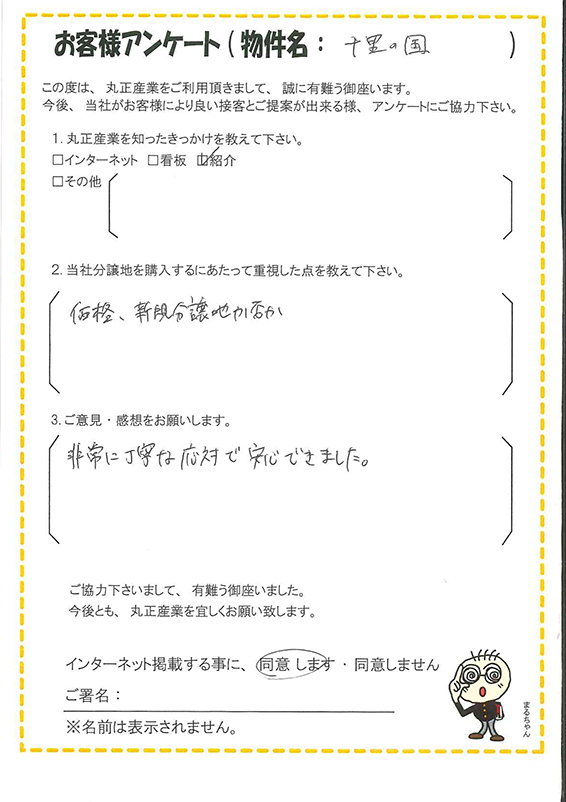 お客様アンケート(物件名： 十里の国 )
この度は、丸正産業をご利用頂きまして、誠に有難う御座います。
今後、当社がお客様により良い接客とご提案が出来る様、アンケートにご協力下さい。
1. 丸正産業を知ったきっかけを教えて下さい。
□インターネット □看板 ☑紹介
□その他
2. 当社分譲地を購入するにあたって重視した点を教えて下さい。
価格、新規分譲地か否か
3. ご意見・感想をお願いします。
非常に丁寧な応対で安心できました。
ご協力下さいまして、有難う御座いました。
今後とも、丸正産業を宜しくお願い致します。
インターネット掲載する事に、同意します・同意しません
ご署名：
※名前は表示されません。
まるちゃん